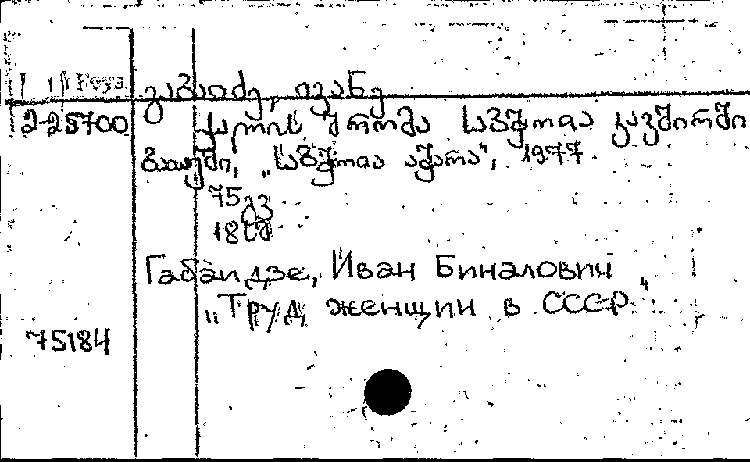 გაბაიძე, ივანე
2-25700 ქალის შრომა საბჭოთა კავშირში
ბათუმი, „საბჭოთა აჭარა", 1977.
75 გვ
18 სმ
Габаидзе, Иван Биналович
„Труд женщин в СССР"
75184